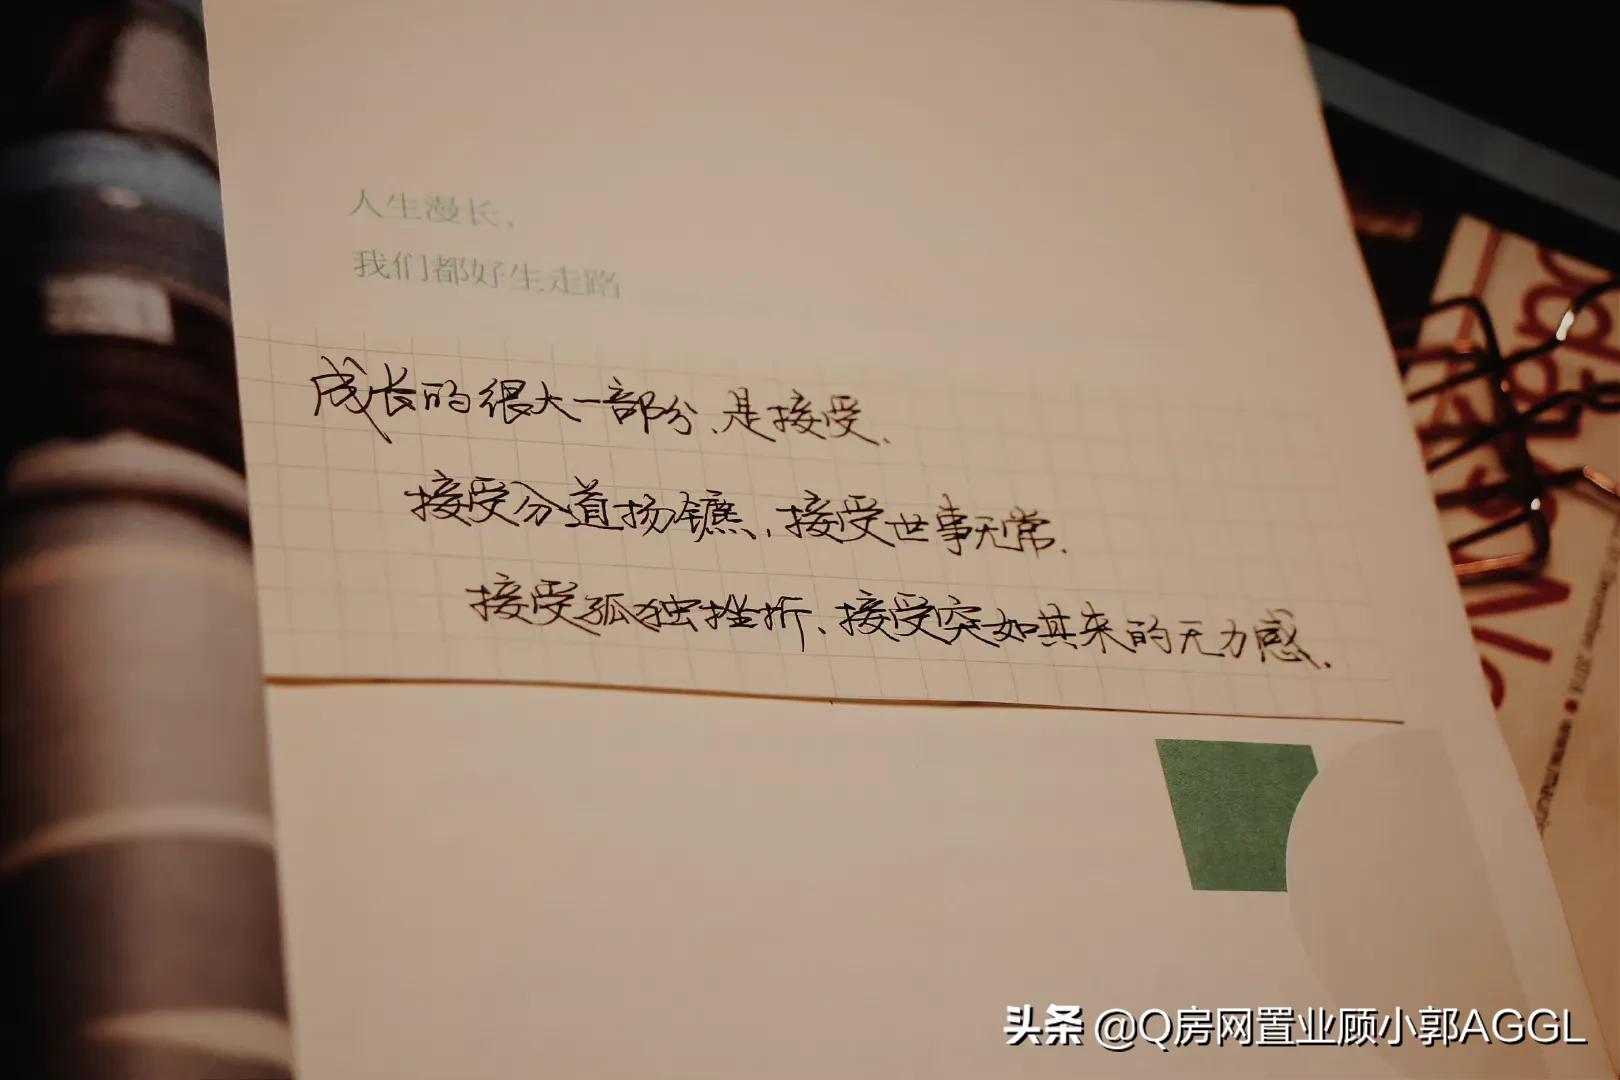 人生漫长，
我们都好生走路
成长的很大一部分、是接受、
接受分道扬镳，接受世事无常.
接受孤独挫折、接受突如其来的无力感、
头条 @Q房网置业顾小郭AGGL